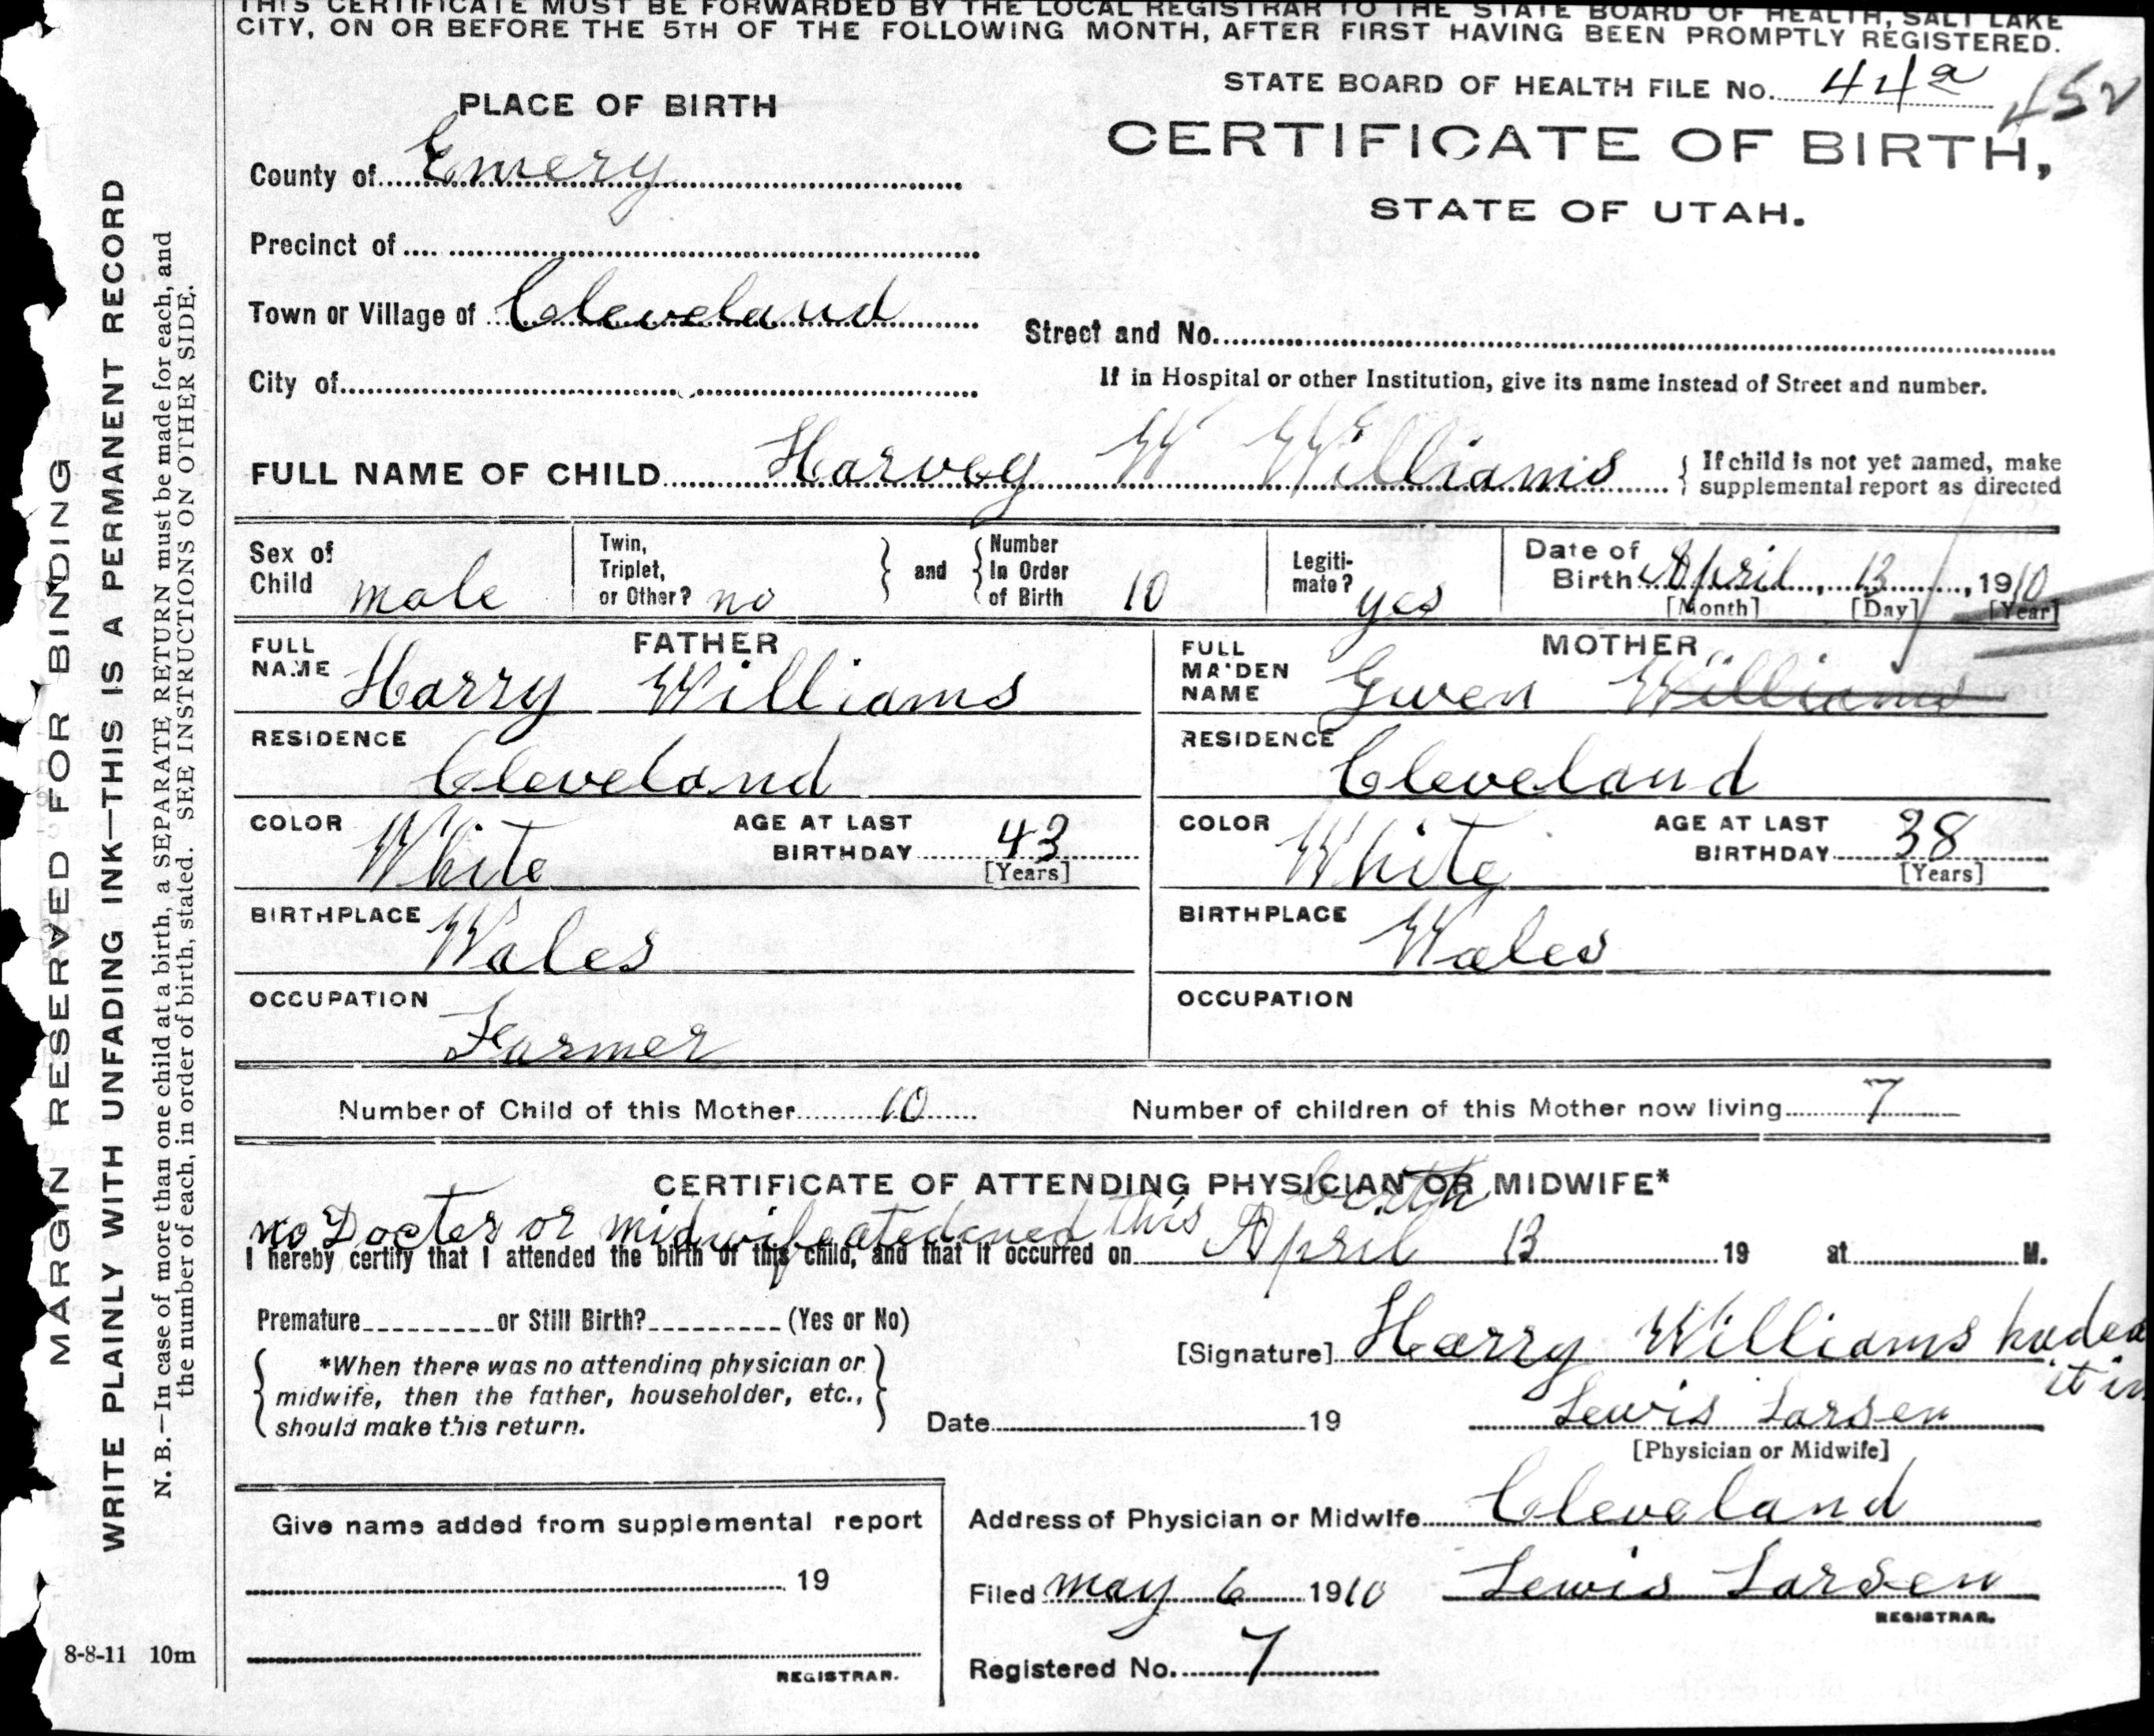 THIS CERTIFICATE MUST BE FORWARDED BY THE LOCAL REGISTRAR TO THE STATE BOARD OF HEALTH, SALT LAKE
CITY, ON OR BEFORE THE 5TH OF THE FOLLOWING MONTH, AFTER FIRST HAVING BEEN PROMPTLY REGISTERED.
STATE BOARD OF HEALTH FILE No. 44a
PLACE OF BIRTH
CERTIFICATE OF BIRTH,
STATE OF UTAH.
County of Emery
Precinct of
Town or Village of Cleveland
Street and No.
City of
If in Hospital or other Institution, give its name instead of Street and number.
FULL NAME OF CHILD Harvey W Williams
If child is not yet named, make
supplemental report as directed
Sex of
Child male
Twin,
Triplet,
or Other? no
and
Number
In Order
of Birth 10
Legiti-
mate? yes
Date of
Birth April 13, 1910
[Month] [Day] [Year]
FATHER
FULL
NAME Harry Williams
RESIDENCE
Cleveland
COLOR White
AGE AT LAST
BIRTHDAY 43
[Years]
BIRTHPLACE
Wales
OCCUPATION
Farmer
MOTHER
FULL
MAIDEN
NAME Gwen Williams
RESIDENCE
Cleveland
COLOR White
AGE AT LAST
BIRTHDAY 38
[Years]
BIRTHPLACE
Wales
OCCUPATION
Number of Child of this Mother 10
Number of children of this Mother now living 7
CERTIFICATE OF ATTENDING PHYSICIAN OR MIDWIFE*
no Docter or midwife atedened this birth
I hereby certify that I attended the birth of this child, and that it occurred on April 13 19 at M.
Premature or Still Birth? (Yes or No)
[Signature] Harry Williams
*When there was no attending physician or
midwife, then the father, householder, etc.,
should make this return.
it in
Date 19
Lewis Larsen
[Physician or Midwife]
Give name added from supplemental report
19
REGISTRAR.
Address of Physician or Midwife Cleveland
Filed may 6 1910
Lewis Larsen
REGISTRAR.
Registered No. 7
MARGIN RESERVED FOR BINDING
WRITE PLAINLY WITH UNFADING INK—THIS IS A PERMANENT RECORD
N. B.—In case of more than one child at a birth, a SEPARATE RETURN must be made for each, and
the number of each, in order of birth, stated. SEE INSTRUCTIONS ON OTHER SIDE.
8-8-11 10m